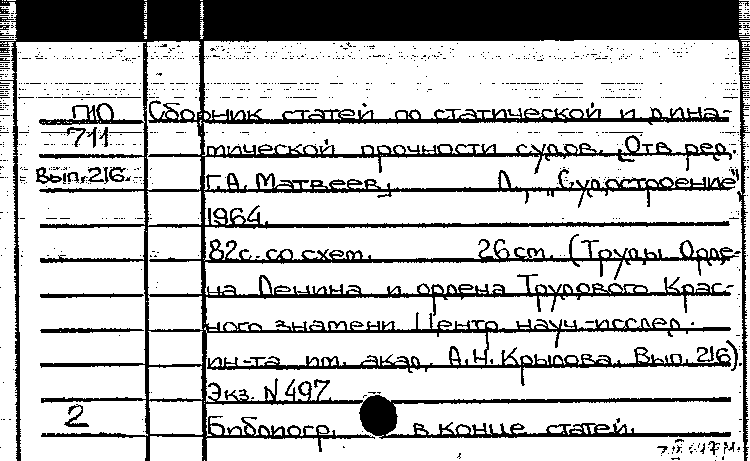 П10 Сборник статей по статической и дина-
711 тической прочности судов. [Отв. ред.
Вып. 216. Г.А. Матвеев] Л., „Судостроение",
1964.
82 с. со схем. 26 см. (Труды Орде-
на Ленина и ордена Трудового Крас-
ного знамени Центр. науч.-исслед.
ин-та им. акад. А.Н. Крылова. Вып. 216).
Экз. N 497.
2 Библиогр. в конце статей.